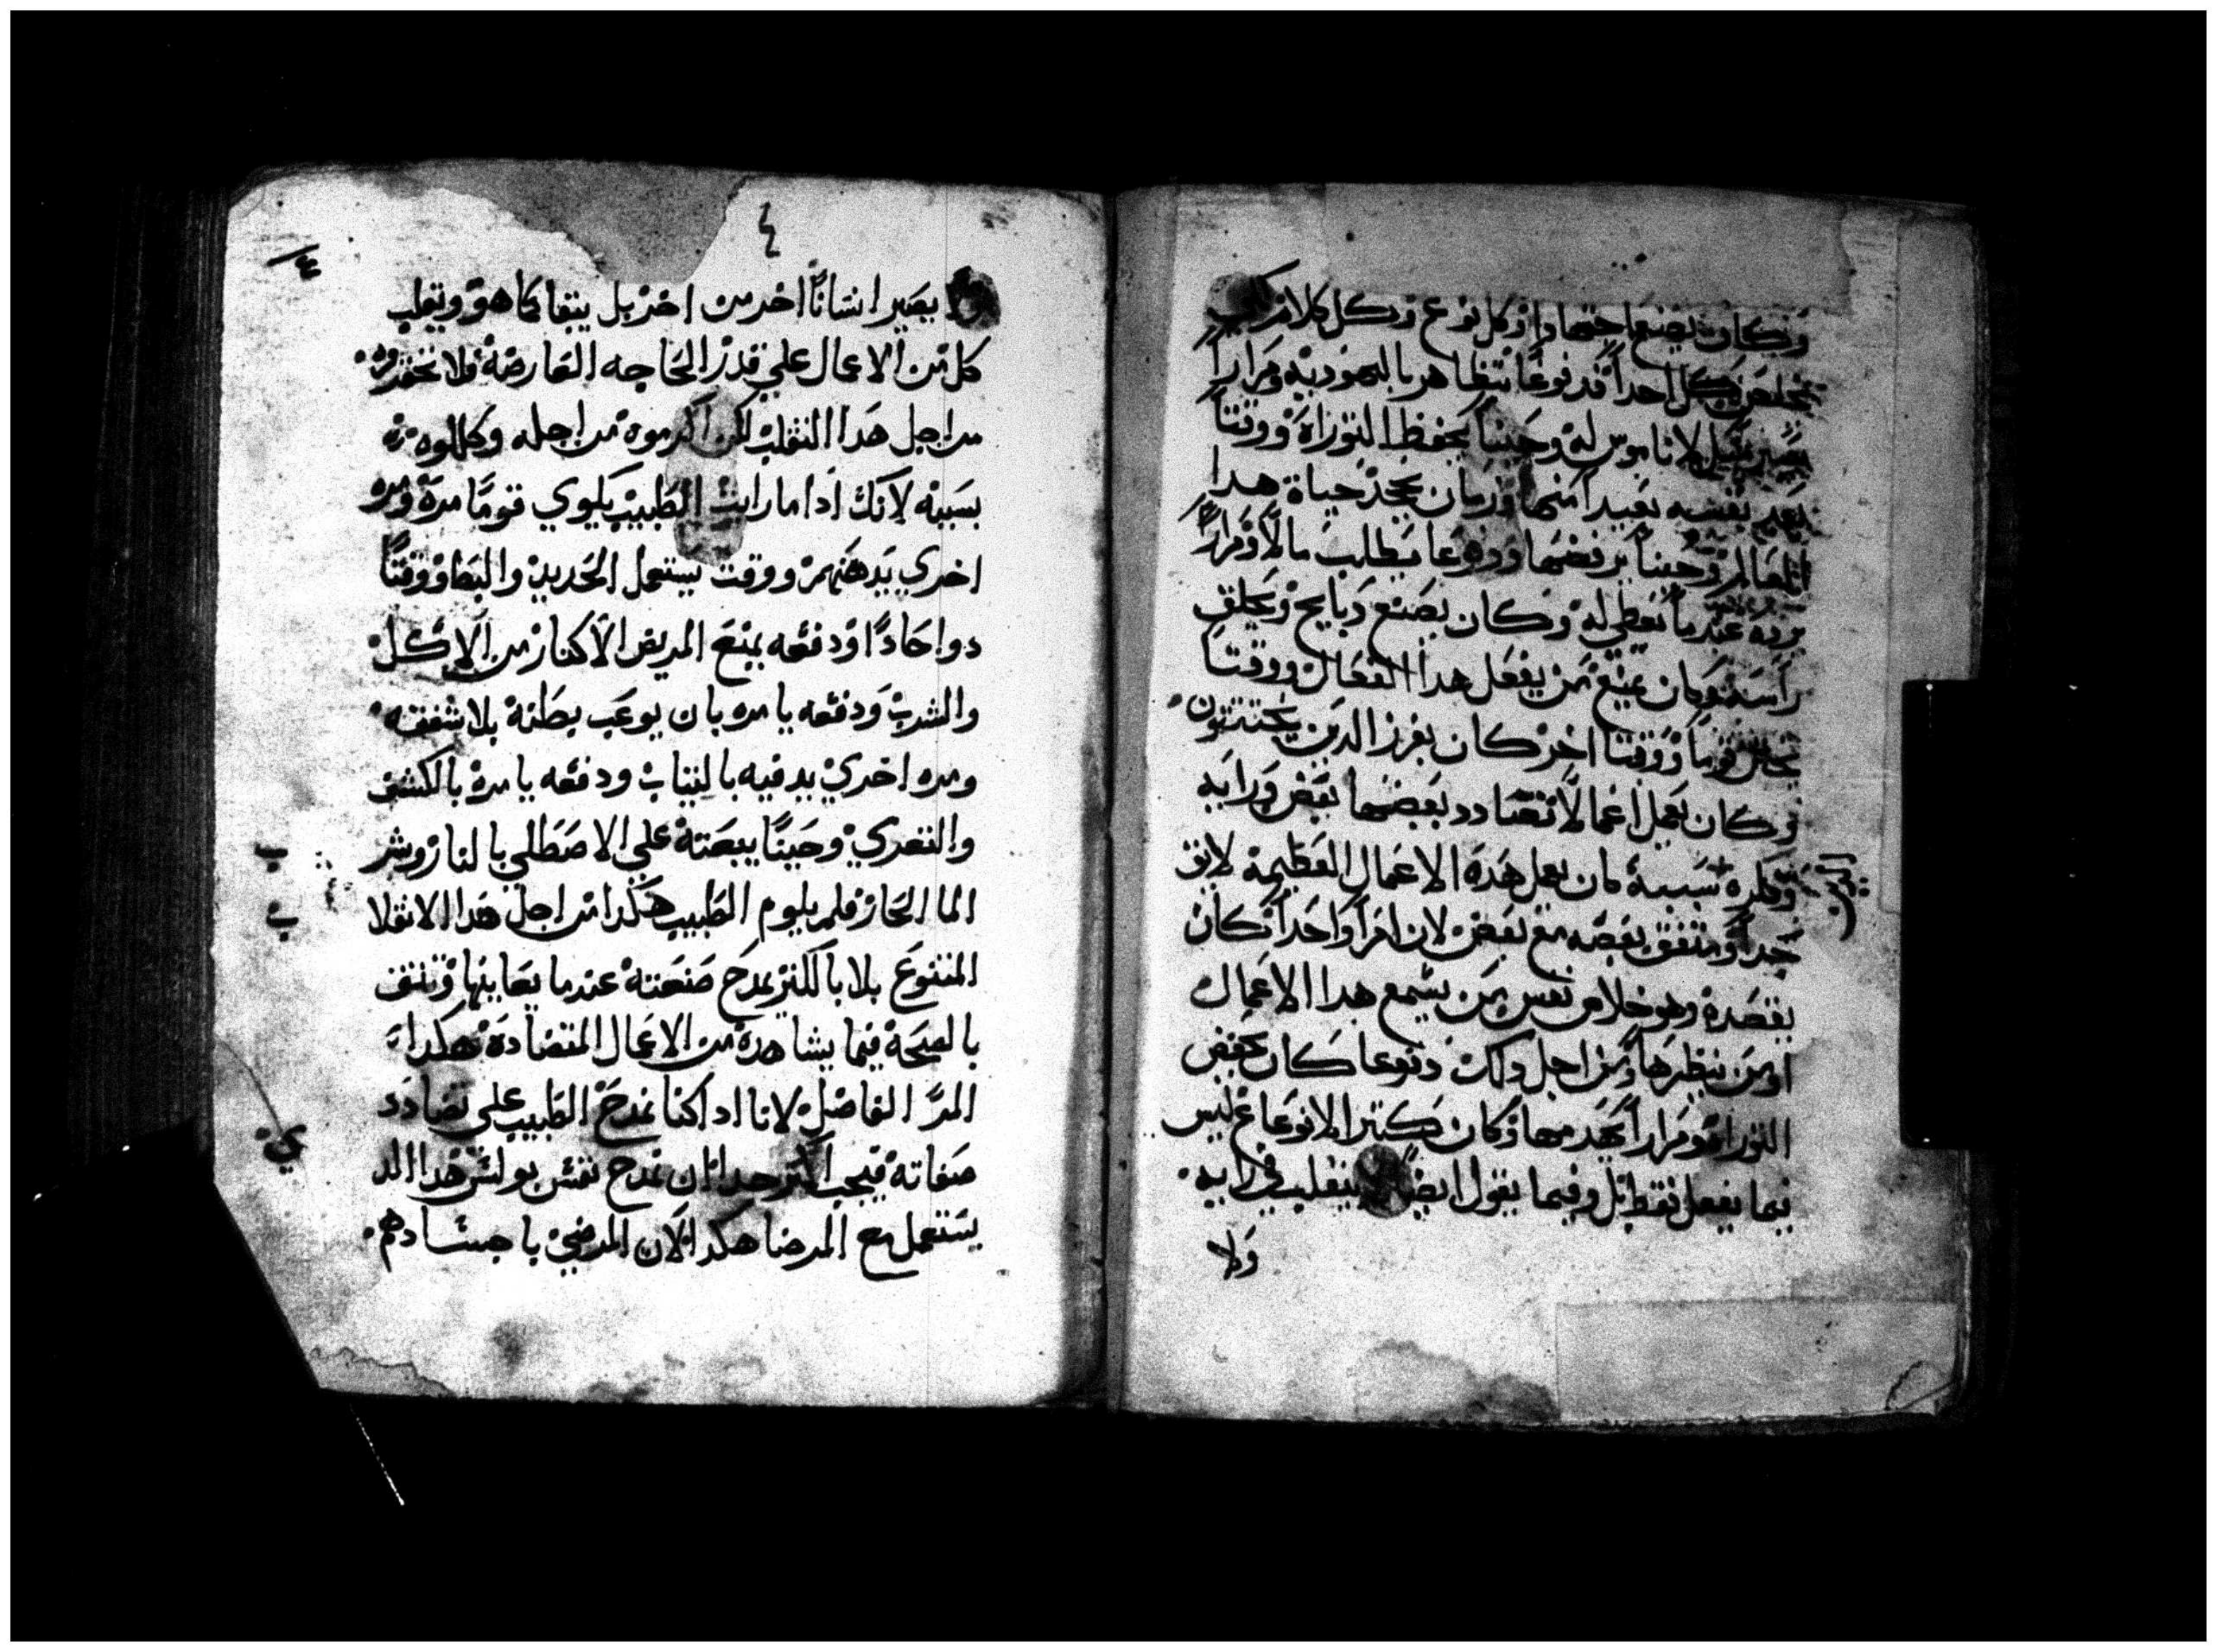 وكان يصنع اجتهادا وكل نوع وبكل كلام لكي
يخلص بكل احداً قد نوعاً يتظاهر باليهودية ومراراً
يصير مثل لا ناموس له وحيناً يحفظ التوراة ووقتاً
يعد نفسه بعيداً منها وزمان يجد حياة هدا
العالم وحيناً يرفضها ونوعا يطلب مالاً ومراراً
يرده عندما تعطي له وكان يصنع دبايح ويحلق
راسه وكان يمنع من يفعل هدا الفعال ووقتاً
يختن قوماً ووقتاً اخر كان يفرز الدين يختتنون
وكان يعمل اعمالاً تتضادد بعضها بعض ورايه
وفكره بسببه كان يعمل هده الاعمال العظيمة لايق
جداً ومتفق بعضه مع بعض لان امراً واحداً كان
يقصده وهو خلاص نفس من يسمع هدا الاعمال
او من ينظرها ومن اجل دلك دنوعا كان يخفض
التوراة ومراراً يهدمها وكان بكثير الانوعاع ليس
فيما يفعل فقط بل وفيما يقول ايضاً ينقلب في رايه
ولا
٤
٤
ولا يصير انساناً اخر من اخر بل يبقا كما هو ويقلب
كل من الاعمال علي قدر الحاجه العارضة فلا تحقروه
من اجل هدا التقلب لكن اكرموه من اجله وكللوه
بسببه لانك ادا ما رايت الطبيب يكوي قوماً مرة ومره
اخري يدهنهم ووقت يستعمل الحديد والبط ووقتاً
دوا حاداً ودفعه يمنع المريض الاكثار من الاكل
والشرب ودفعه يامره بان يوعب بطنه بلا شفقه
ومره اخري يدفيه بالتياب ودفعه يامره بالكشف
والتعري وحيناً يبعته علي الاصطلي بالنار وشر
ب
الما الحار فلم يلوم الطبيب هكدا من اجل هدا الانقلا
ب
المتنوع بلا باكتر يمدح صنعته عندما يعاينها وتتف
بالصحة فيما يشاهده من الاعمال المتضادة هكدا
المر الفاضل لانا ادا كنا نمدح الطبيب علي تضادد
صفاته فيجب اكتر جدا ان نمدح نفس بولس هدا الد
ي
يستعمل مع المرضا هكدا لان المرضي باجسادهم